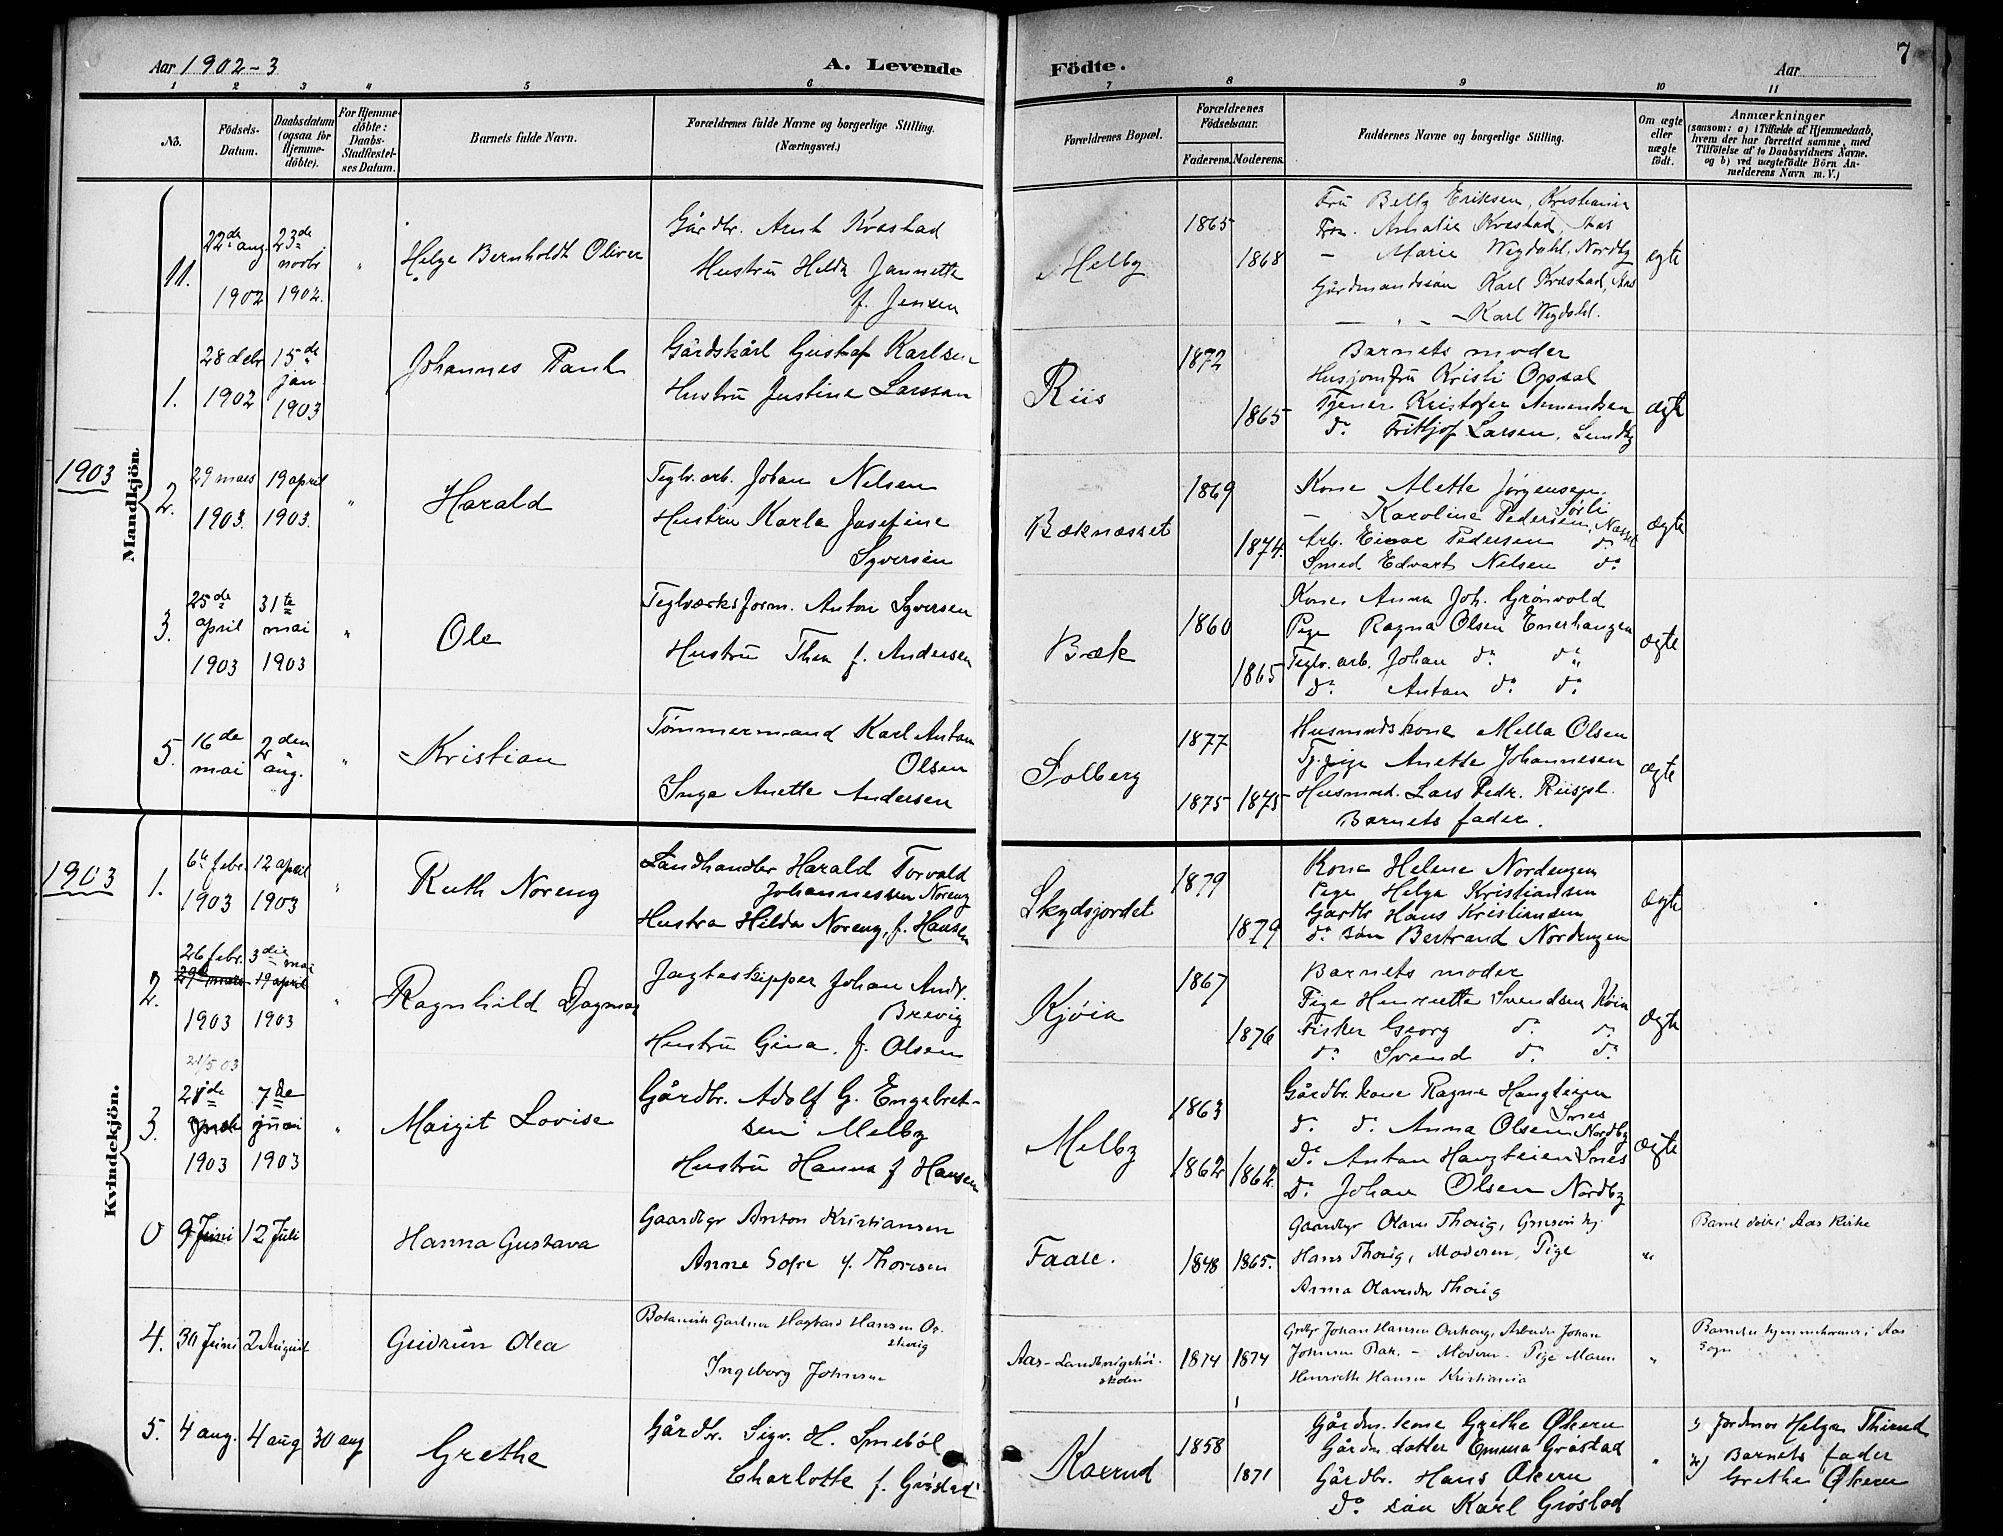 Aar 1902-3
A. Levende
Födte.
Aar
7
1 2 3 4 5 6 7 8 9 10 11
No.
Födsels-
Datum.
Daabsdatum
(ogsaa for
Hjemme-
döbte).
For Hjemme-
döbte:
Daabs-
Stadfæstel-
ses Datum.
Barnets fulde Navn.
Forældrenes fulde Navne og borgerlige Stilling.
(Næringsvei.)
Forældrenes Bopæl.
Forældrenes
Födselsaar.
Faderens. Moderens.
Faddernes Navne og borgerlige Stilling.
Om ægte
eller
uægte
födt.
Anmærkninger
(saasom: a) i Tilfælde af Hjemmedaab,
hvem der har forrettet samme, med
Tilföielse af to Daabsvidners Navne.
og b) ved uægtefödte Börn An-
melderens Navn m. V.)
Mandkjön.
11.
22de aug.
1902
23de
novbr
1902.
"
Helge Bernholdt Oliver
Gårdbr. Arnt Kråstad
Hustru Hilda Jannette
f. Jensen
Melby
1865
1868
Fru Betty Eriksen, Kristiania
Fru. Amalie Kråstad, Aas
— Marie Wegdahl, Nordby
Gårdmandssøn Karl Kråstad, Aas
— " — Karl Wegdahl.
ægte
1.
28 debr
1902
15de
jan.
1903
Johannes Paul
Gårdskårl Gustaf Karlsen
Hustru Justine Larsson
Riis
1872
1865
Barnets moder
Husjomfru Kristi Opsal
Tjener Kristofer Amundsen
do. Fritjof Larsen, Sundby
ægte
1903
2.
29 mars
1903.
19 april
1903.
"
Harald
Teglv.arb. Johan Nelsen
Hustru Karla Josefine
Syversen
Bæknæsset
1869
1874.
Kone Alette Jørgensen.
Sørli
— Karoline Pedersen, Næsset
Arb. Einar Pedersen do.
Smed Edvart Nelsen do.
ægte
3.
25de
april
1903
31te
mai
1903
"
Ole
Teglværksform. Anton Syversen
Hustru Thea f. Andersen
Bæk
1860
1865
Kone Anna Joh. Grønvold
Pige Ragna Olsen Enerhaugen
Teglv.arb. Johan do. do.
do. Anton do. do.
ægte
5.
16de
mai
2den
aug.
"
Kristian
Tømmermand Karl Anton
Olsen
Inga Anette Andersen
Solberg
1877
1875 1875
Husmandskone Mella Olsen
Tj.pige Anette Johannesen
Husmd. Lars Pedr. Riispl.
Barnets fader.
ægte
Kvindekjön.
1903
1.
6te febr.
1903
12 april
1903
"
Ruth Noreng
Landhandler Harald Torvald
Johannessen Noreng
Hustru Hilda Noreng, f. Hansen
Skydsjordet
1879
1879
Kone Helene Nordengen
Pige Helga Kristiansen
Gårdbr Hans Kristiansen
do. søn Bertrand Nordengen
ægte
2.
26 febr.
29de mars
1903
3die mai
19 april
1903
"
Ragnhild Dagmar
Jagteskipper Johan Andr.
Brevig
Hustru Gina, f. Olsen
Kjøia
1867
1876
Barnets moder
Pige Henriette Svendsen Køia
Fisker Georg do. do.
do. Svend do. do.
ægte
21/5 03
3.
1903
7de
juni
1903
"
Margit Lovise
Gårdbr. Adolf G. Engebret-
sen Melby
Hustru Hanna f Hansen
Melby
1863
1862 1862.
Gårdbr. kone Ragna Haugteien
Snes
do. do. Anna Olsen Nordby
Do. Anton Haugteien Snes
Do. Johan Olsen Nordby
ægte
0
9 Juni
12 Juli
Hanna Gustava
Gaardbgr Anton Kristiansen
Anne Sofie f. Thoresen
Faale.
1848 1865.
Gaardbgr Olaves Thorig,
Hans Thorig, Moderen, Pige
Anna Thorig
"
Barnet døbt i Aas Kirke
4.
30 Juni
2 August
Gudrun Olea
Botanisk Gartner Hagbard Hansen
Ingeborg Johnsen
Aas-Landbrugshøi-
skolen
1874 1874
Johan Hansen Arbeider Johan
Johnsen — Moderen — Pige Maren
Henriette Hansen Kristiania
"
Barnet hjemmehører i Aas
Sogn
5.
4 aug.
4 aug
30 aug
Grethe
Gårdbr. Sigv. H. Smebøl
Charlotte f. Grøstad
Kaerud
1858
1871
Gårdm. kone Grethe Økern
Gårdm. datter Emma Grøstad
Gårdbr. Hans Økern
Do. søn Karl Grøstad
"
1) Jordmor Helga Thirud
2) Barnets fader
Grethe Økern